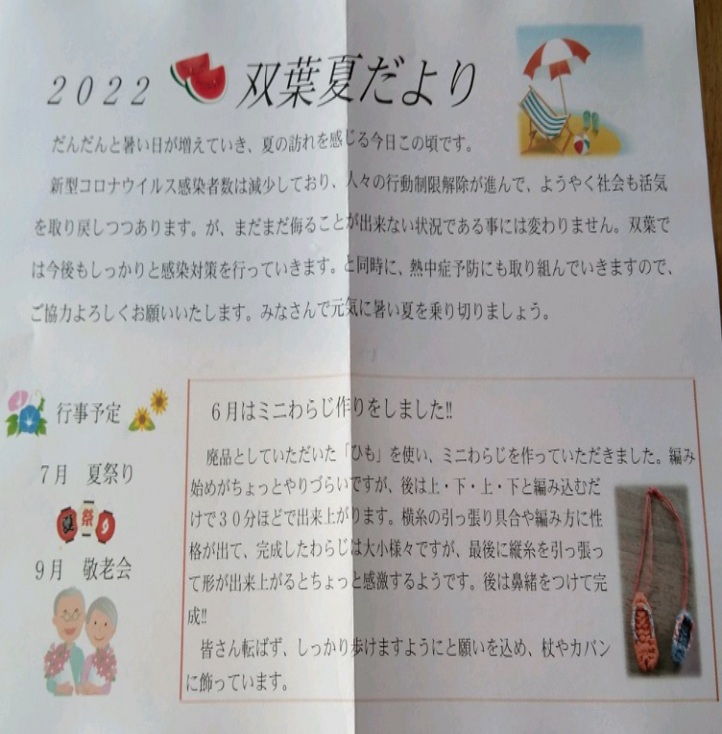 2022 双葉夏だより
だんだんと暑い日が増えていき、夏の訪れを感じる今日この頃です。
新型コロナウイルス感染者数は減少しており、人々の行動制限解除が進んで、ようやく社会も活気
を取り戻しつつあります。が、まだまだ侮ることが出来ない状況である事には変わりません。双葉で
は今後もしっかりと感染対策を行っていきます。と同時に、熱中症予防にも取り組んでいきますので、
ご協力よろしくお願いいたします。みなさんで元気に暑い夏を乗り切りましょう。
行事予定
7月 夏祭り
夏祭り
9月 敬老会
6月はミニわらじ作りをしました!!
廃品としていただいた「ひも」を使い、ミニわらじを作っていただきました。編み
始めがちょっとやりづらいですが、後は上・下・上・下と編み込むだ
けで30分ほどで出来上がります。横糸の引っ張り具合や編み方に性
格が出て、完成したわらじは大小様々ですが、最後に縦糸を引っ張っ
て形が出来上がるとちょっと感激するようです。後は鼻緒をつけて完
成!!
皆さん転ばず、しっかり歩けますようにと願いを込め、杖やカバン
に飾っています。